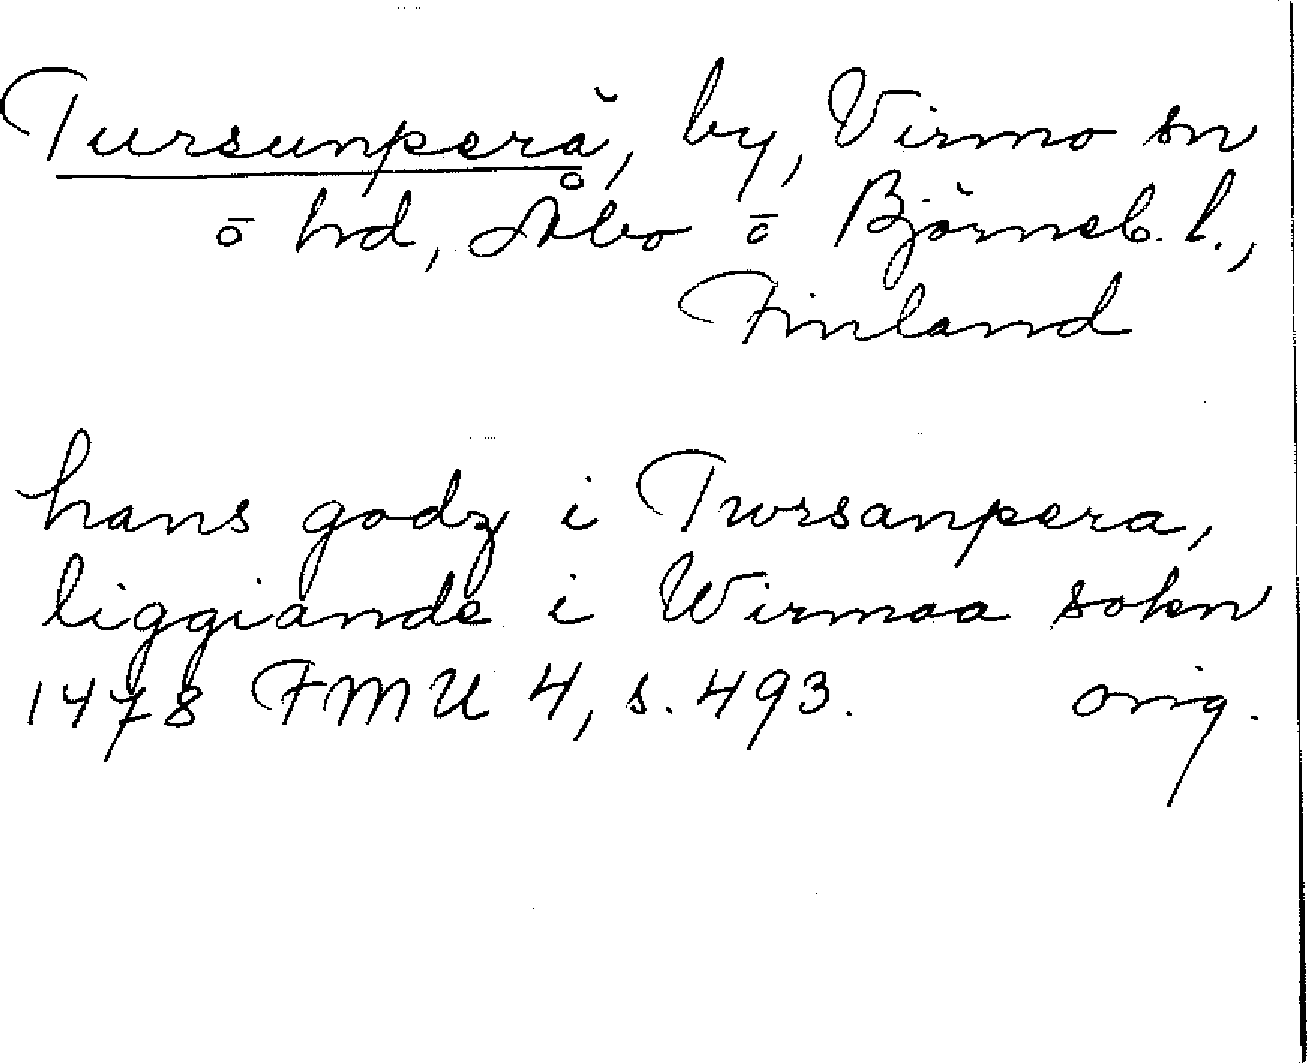 Tursunperä, by, Virmo sn
o hd, Åbo o Björneb. l.,
Finland
hans godz i Twrsanpera,
liggiande i Wirmaa sokn
1478 FMU 4, s. 493. orig.